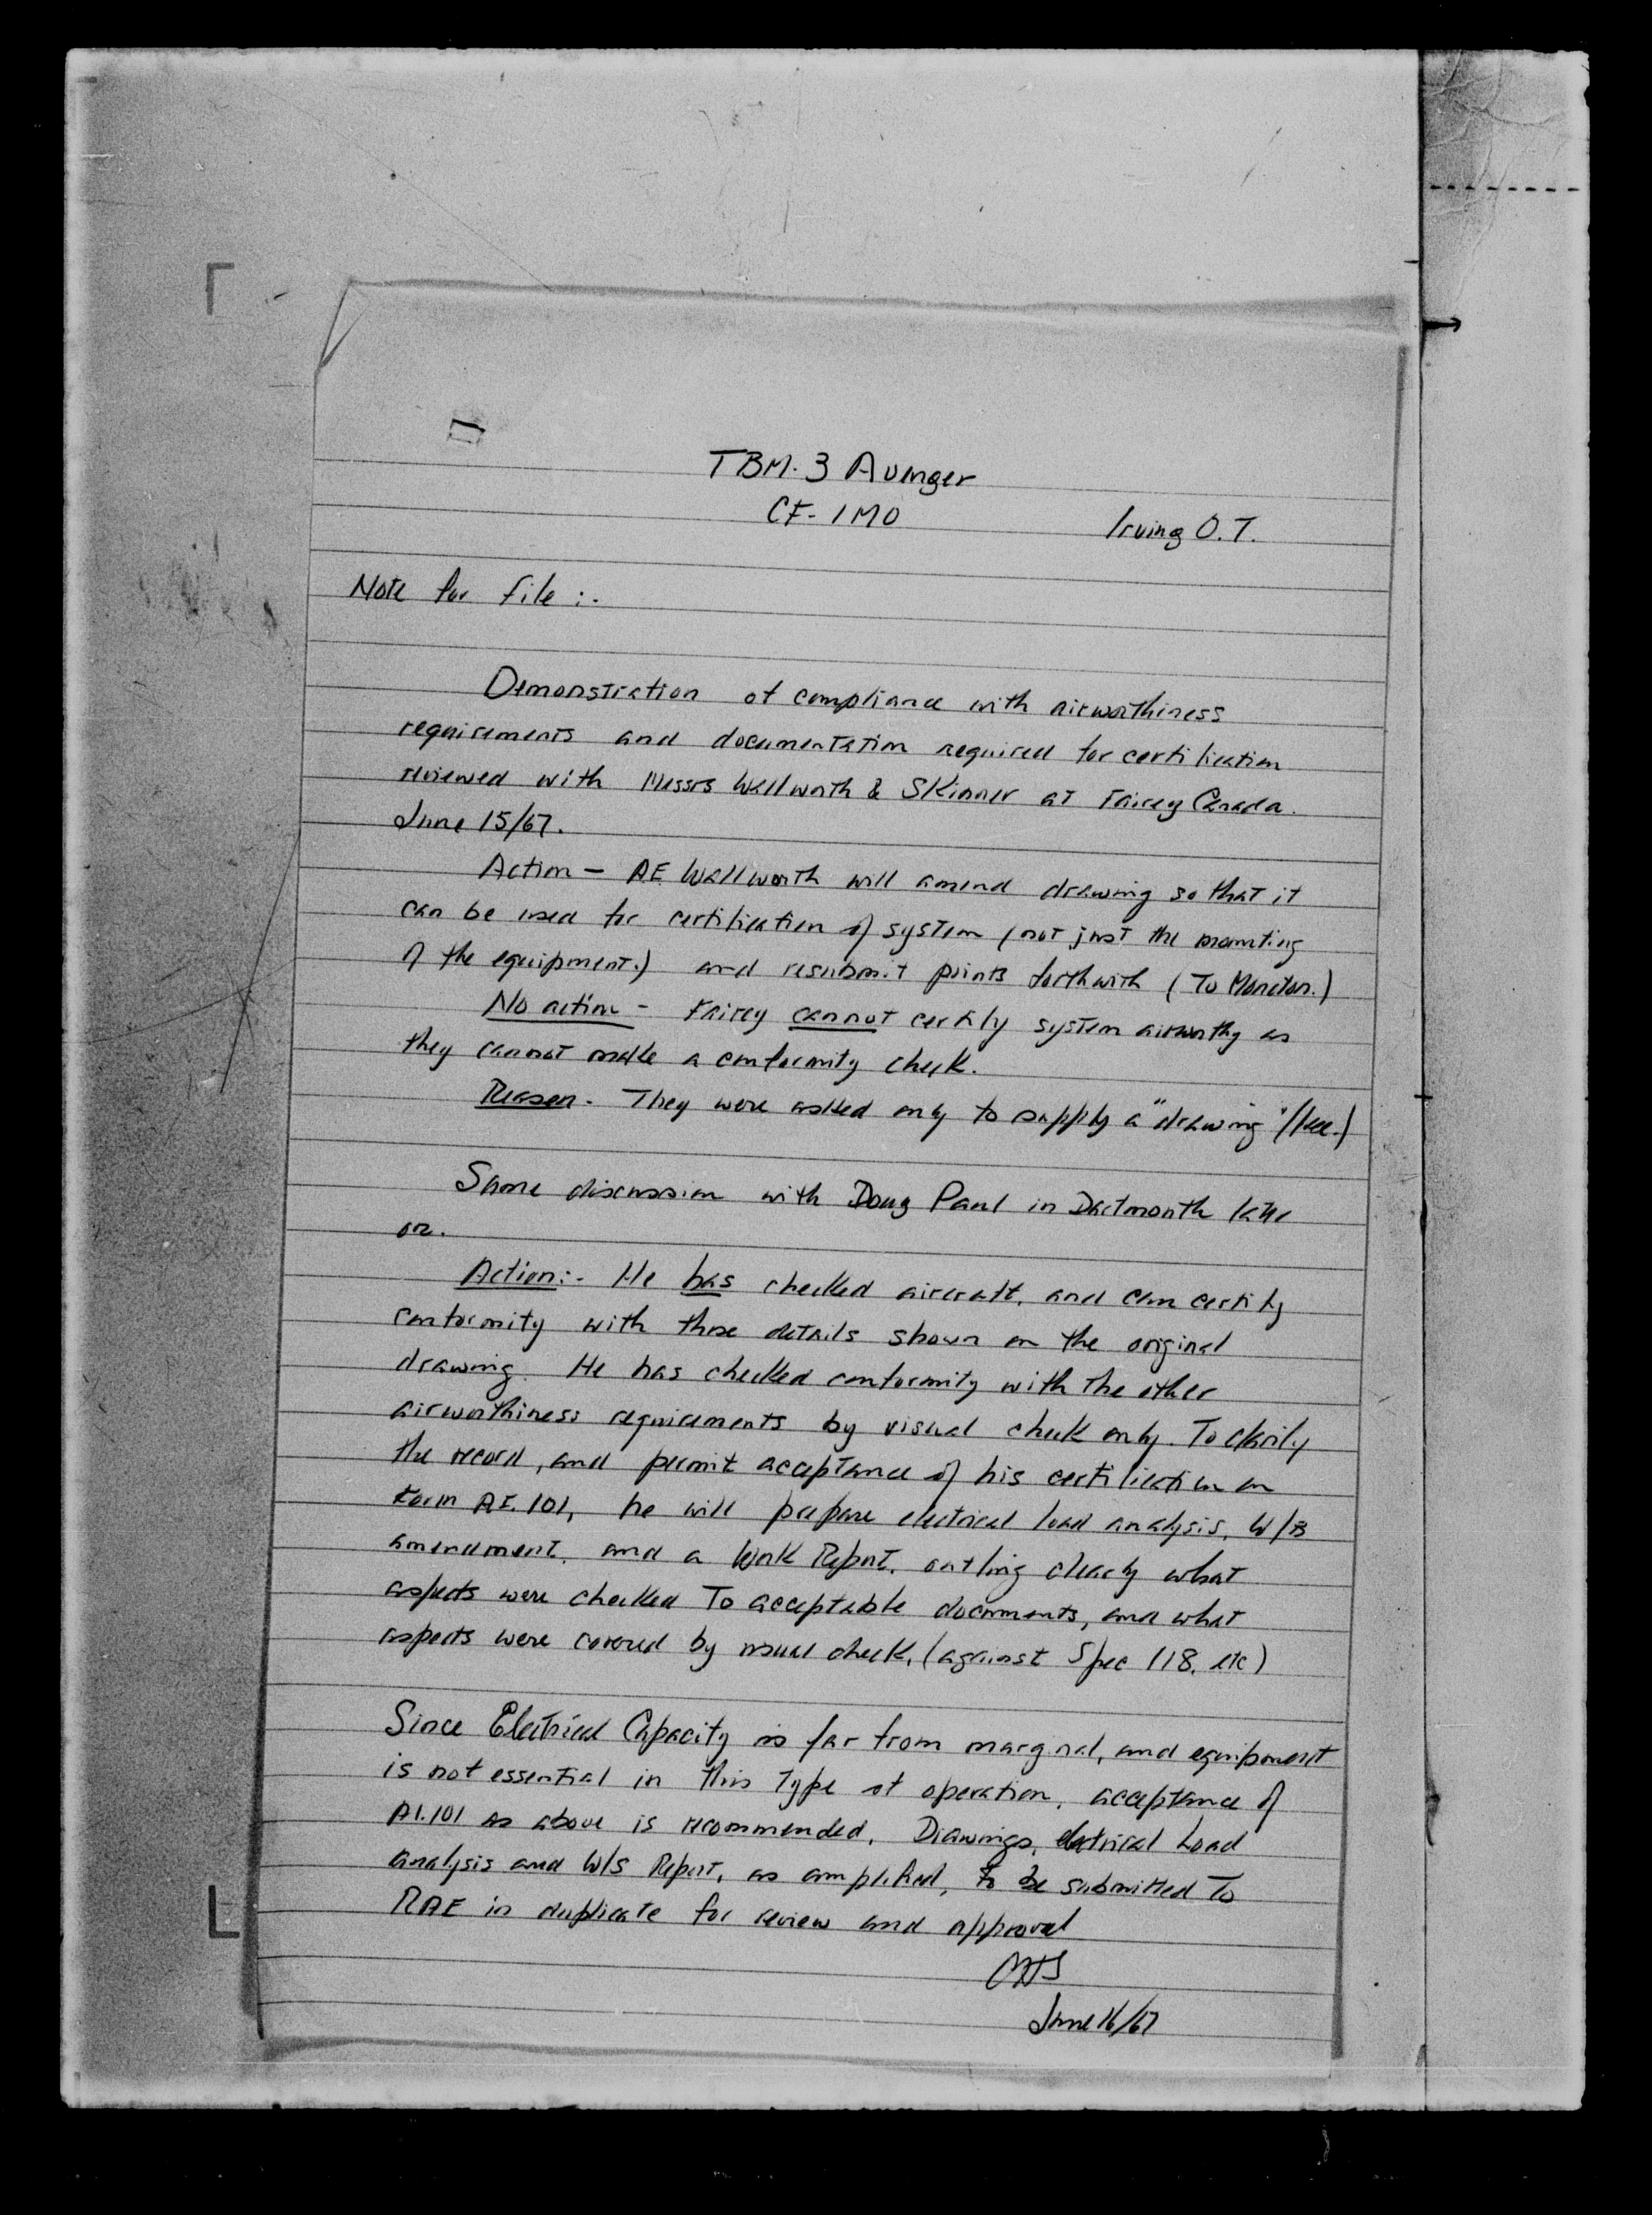 TBM-3 Avenger
CF-IMO
Irving O.T.
Note for file :-
Demonstration of compliance with airworthiness
requirements and documentation required for certification
reviewed with Messrs Wallworth & Skinner at Fairey Canada.
June 15/67.
Action — AE Wallworth will amend drawing so that it
can be used for certification of system (not just the mounting
of the equipment.) and resubmit prints forthwith (To Moncton.)
No action - Fairey cannot certify system airworthy as
they cannot make a conformity check.
Reason - They were asked only to supply a "drawing"
Same discussion with Doug Paul in Dartmouth later
on.
Action:- He has checked aircraft, and can certify
conformity with those details shown on the original
drawing. He has checked conformity with the other
airworthiness requirements by visual check only. To clarify
the record, and permit acceptance of his certification on
Form AI.101, he will prepare electrical load analysis, W/B
amendment, and a Work Report, outling clearly what
aspects were checked To acceptable documents, and what
aspects were covered by visual check, (against Spec 118. etc)
Since Electrical Capacity is far from marginal, and equipment
is not essential in this type of operation, acceptance of
AI.101 as above is recommended. Drawings, electrical Load
analysis and W/S Report, as amplified, to be submitted To
RAE in duplicate for review and approval
June 16/67